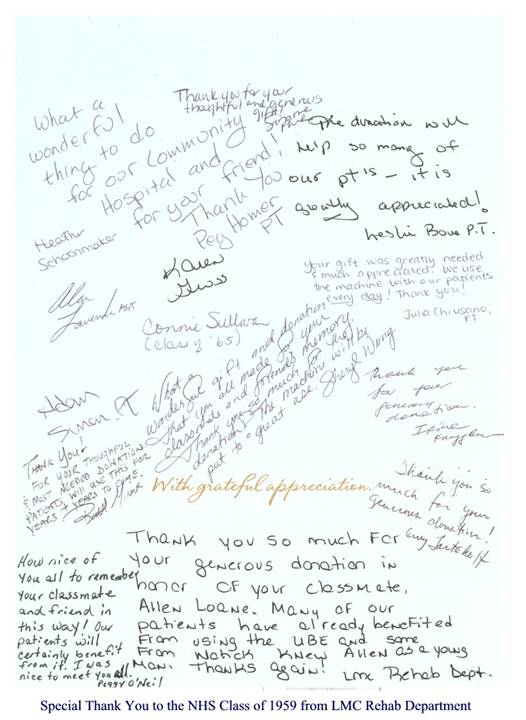 What a
wonderful
thing to do
for our Community
Hospital and
for your friend!
Thank You
Peg Homer
PT
Thank you for your
thoughtful and generous
gift!
The donation will
help so many of
our pt's - it is
greatly appreciated!
Leslie Bove P.T.
Heather
Schoonmaker
Karen
Gross
Your gift was greatly needed
& much appreciated. We use
the machine with our patients
every day! Thank you!
Julia Chiusano,
PT
Connie Sullivan
(class of '65)
What a
wonderful gift and donation
that you all made for your
classmate and friend's memory.
Thank you so much for the
donation! The machine will be
put to a great use. Sheryl Wang
Adam
Simon, PT
Thank you
for your
generous
donation.
Thank You!
For your thoughtful
& most needed donation.
Patients will use this for
years & years to come.
With grateful appreciation.
Thank you so
much for your
generous donation!
Thank you so much for
your generous donation in
honor of your classmate,
Allen Loane. Many of our
patients have already benefited
from using the UBE and some
from Natick knew Allen as a young
man. Thanks again! LMC Rehab Dept.
How nice of
you all to remember
your classmate
and friend in
this way! Our
patients will
certainly benefit
from it! I was
nice to meet you all.
Peggy O'Neil
Special Thank You to the NHS Class of 1959 from LMC Rehab Department